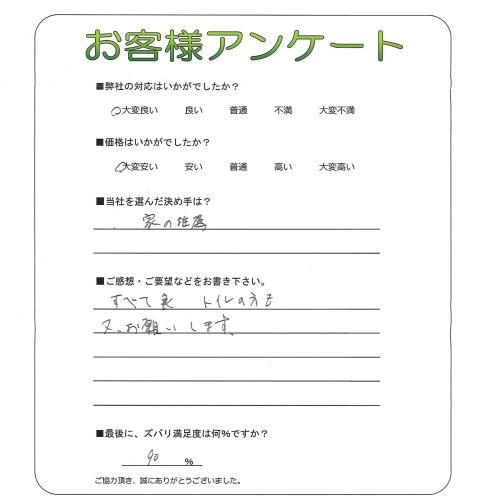 お客様アンケート
■弊社の対応はいかがでしたか？
大変良い 良い 普通 不満 大変不満
■価格はいかがでしたか？
大変安い 安い 普通 高い 大変高い
■当社を選んだ決め手は？
家の推薦
■ご感想・ご要望などをお書き下さい。
すべて良 トイレの方も
又、お願いします。
■最後に、ズバリ満足度は何％ですか？
90 ％
ご協力頂き、誠にありがとうございました。